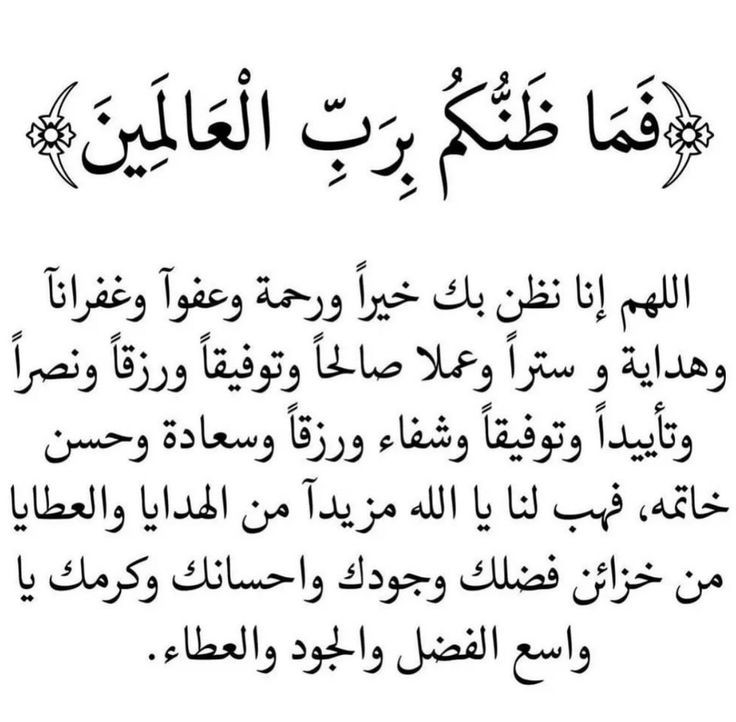 ﴿فَمَا ظَنُّكُم بِرَبِّ الْعَالَمِينَ﴾
اللهم إنا نظن بك خيراً ورحمة وعفوآ وغفرانآ
وهداية و ستراً وعملا صالحاً وتوفيقاً ورزقاً ونصراً
وتأييداً وتوفيقاً وشفاء ورزقاً وسعادة وحسن
خاتمه، فهب لنا يا الله مزيدآ من الهدايا والعطايا
من خزائن فضلك وجودك واحسانك وكرمك يا
واسع الفضل والجود والعطاء.